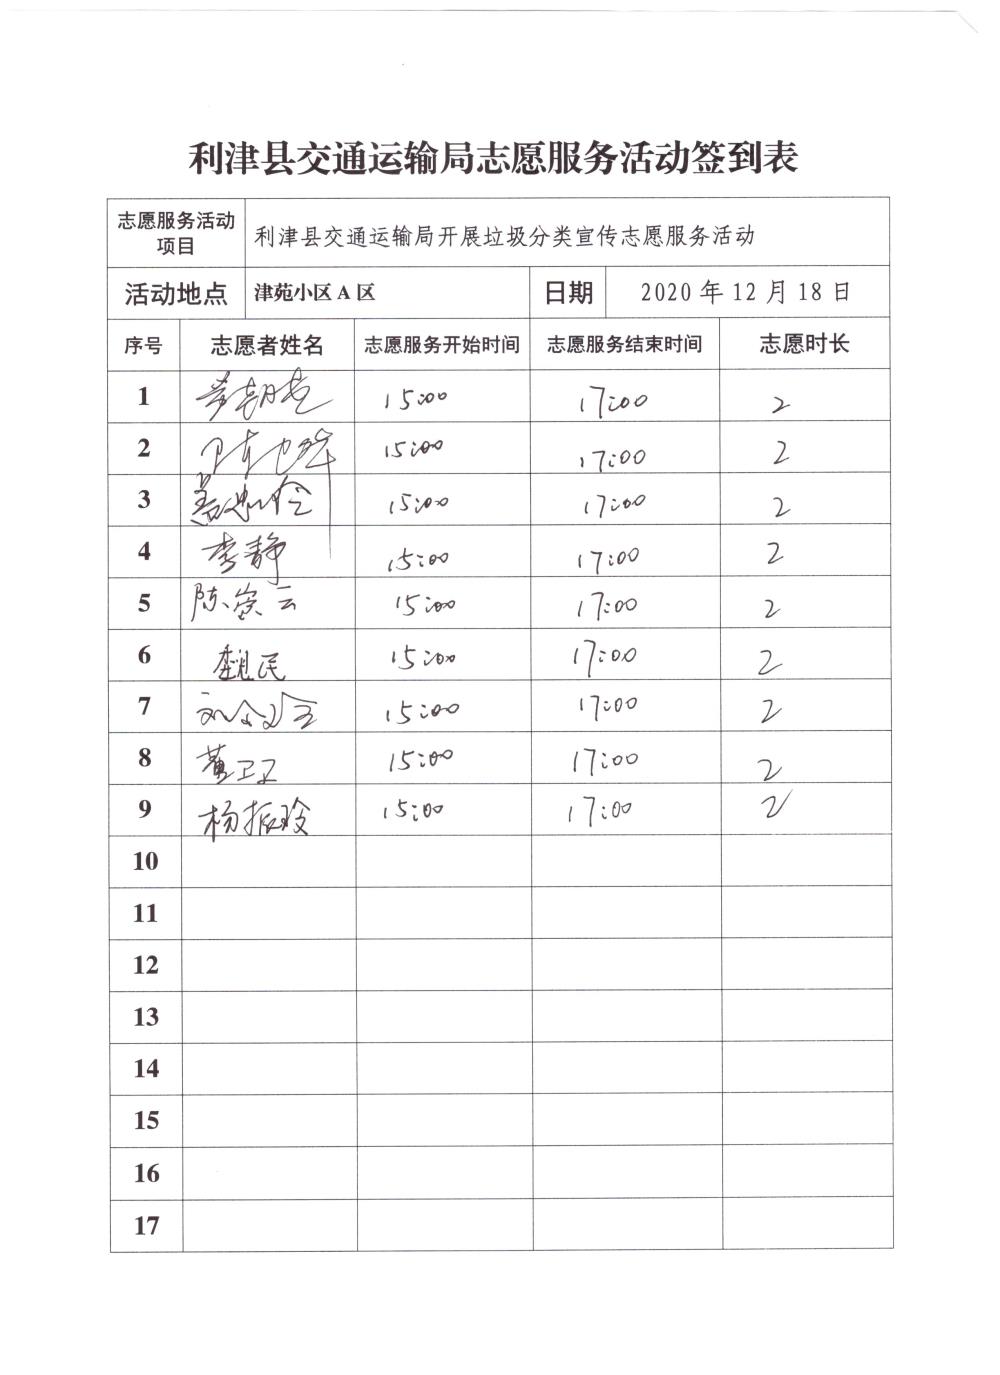 利津县交通运输局志愿服务活动签到表
志愿服务活动
项目
利津县交通运输局开展垃圾分类宣传志愿服务活动
活动地点 津苑小区 A 区 日期 2020 年 12 月 18 日
序号 志愿者姓名 志愿服务开始时间 志愿服务结束时间 志愿时长
1 15:00 17:00 2
2 15:00 17:00 2
3 15:00 17:00 2
4 李静 15:00 17:00 2
5 陈崇云 15:00 17:00 2
6 魏民 15:00 17:00 2
7 15:00 17:00 2
8 黄卫卫 15:00 17:00 2
9 杨振玲 15:00 17:00 2
10
11
12
13
14
15
16
17